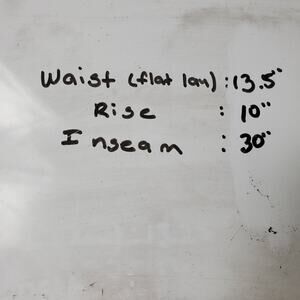 Waist (flat lay) : 13.5"
Rise : 10"
Inseam : 30"